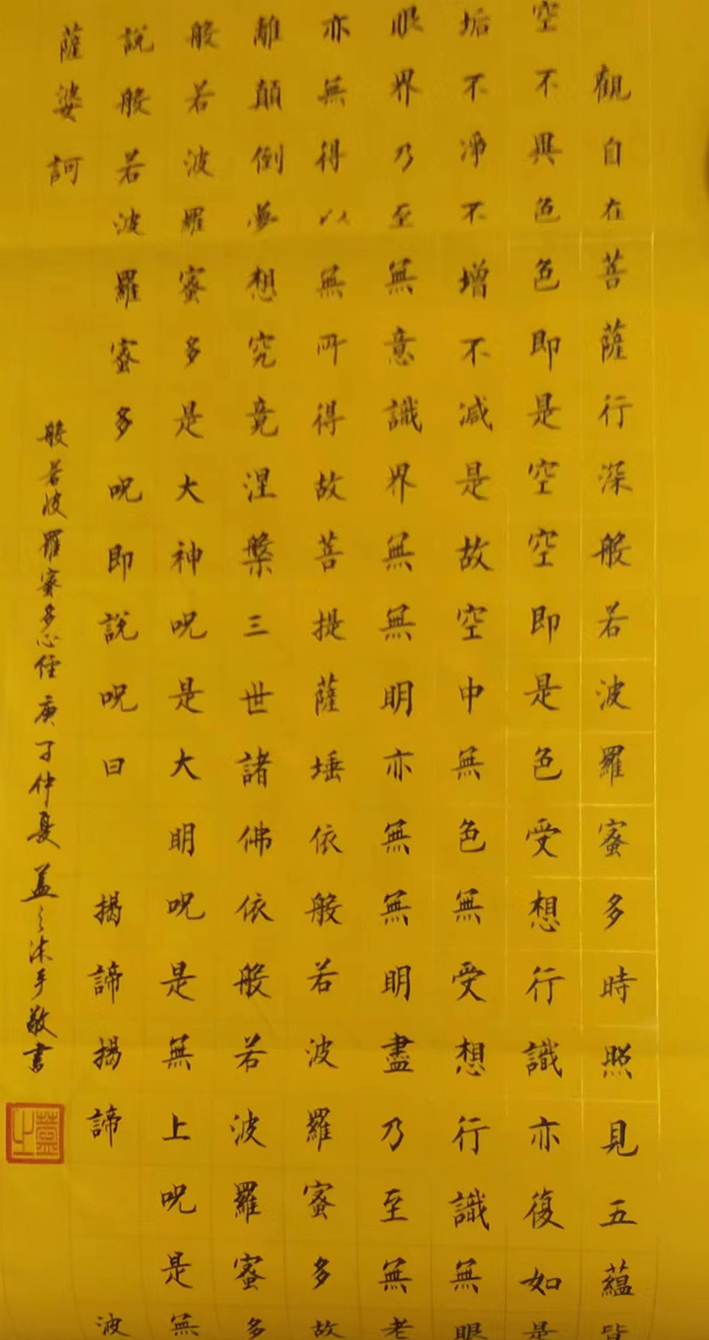 觀自在菩薩行深般若波羅蜜多時照見五蘊皆
空不異色色即是空空即是色受想行識亦復如是
垢不淨不增不減是故空中無色無受想行識無眼
眼界乃至無意識界無無明亦無無明盡乃至無老
亦無得以無所得故菩提薩埵依般若波羅蜜多故
離顛倒夢想究竟涅槃三世諸佛依般若波羅蜜多
般若波羅蜜多是大神呪是大明呪是無上呪是無
說般若波羅蜜多呪即說呪曰 揭諦揭諦 波
薩婆訶
般若波羅蜜多心經 庚子仲夏 蓋之沐手敬書
蓋之